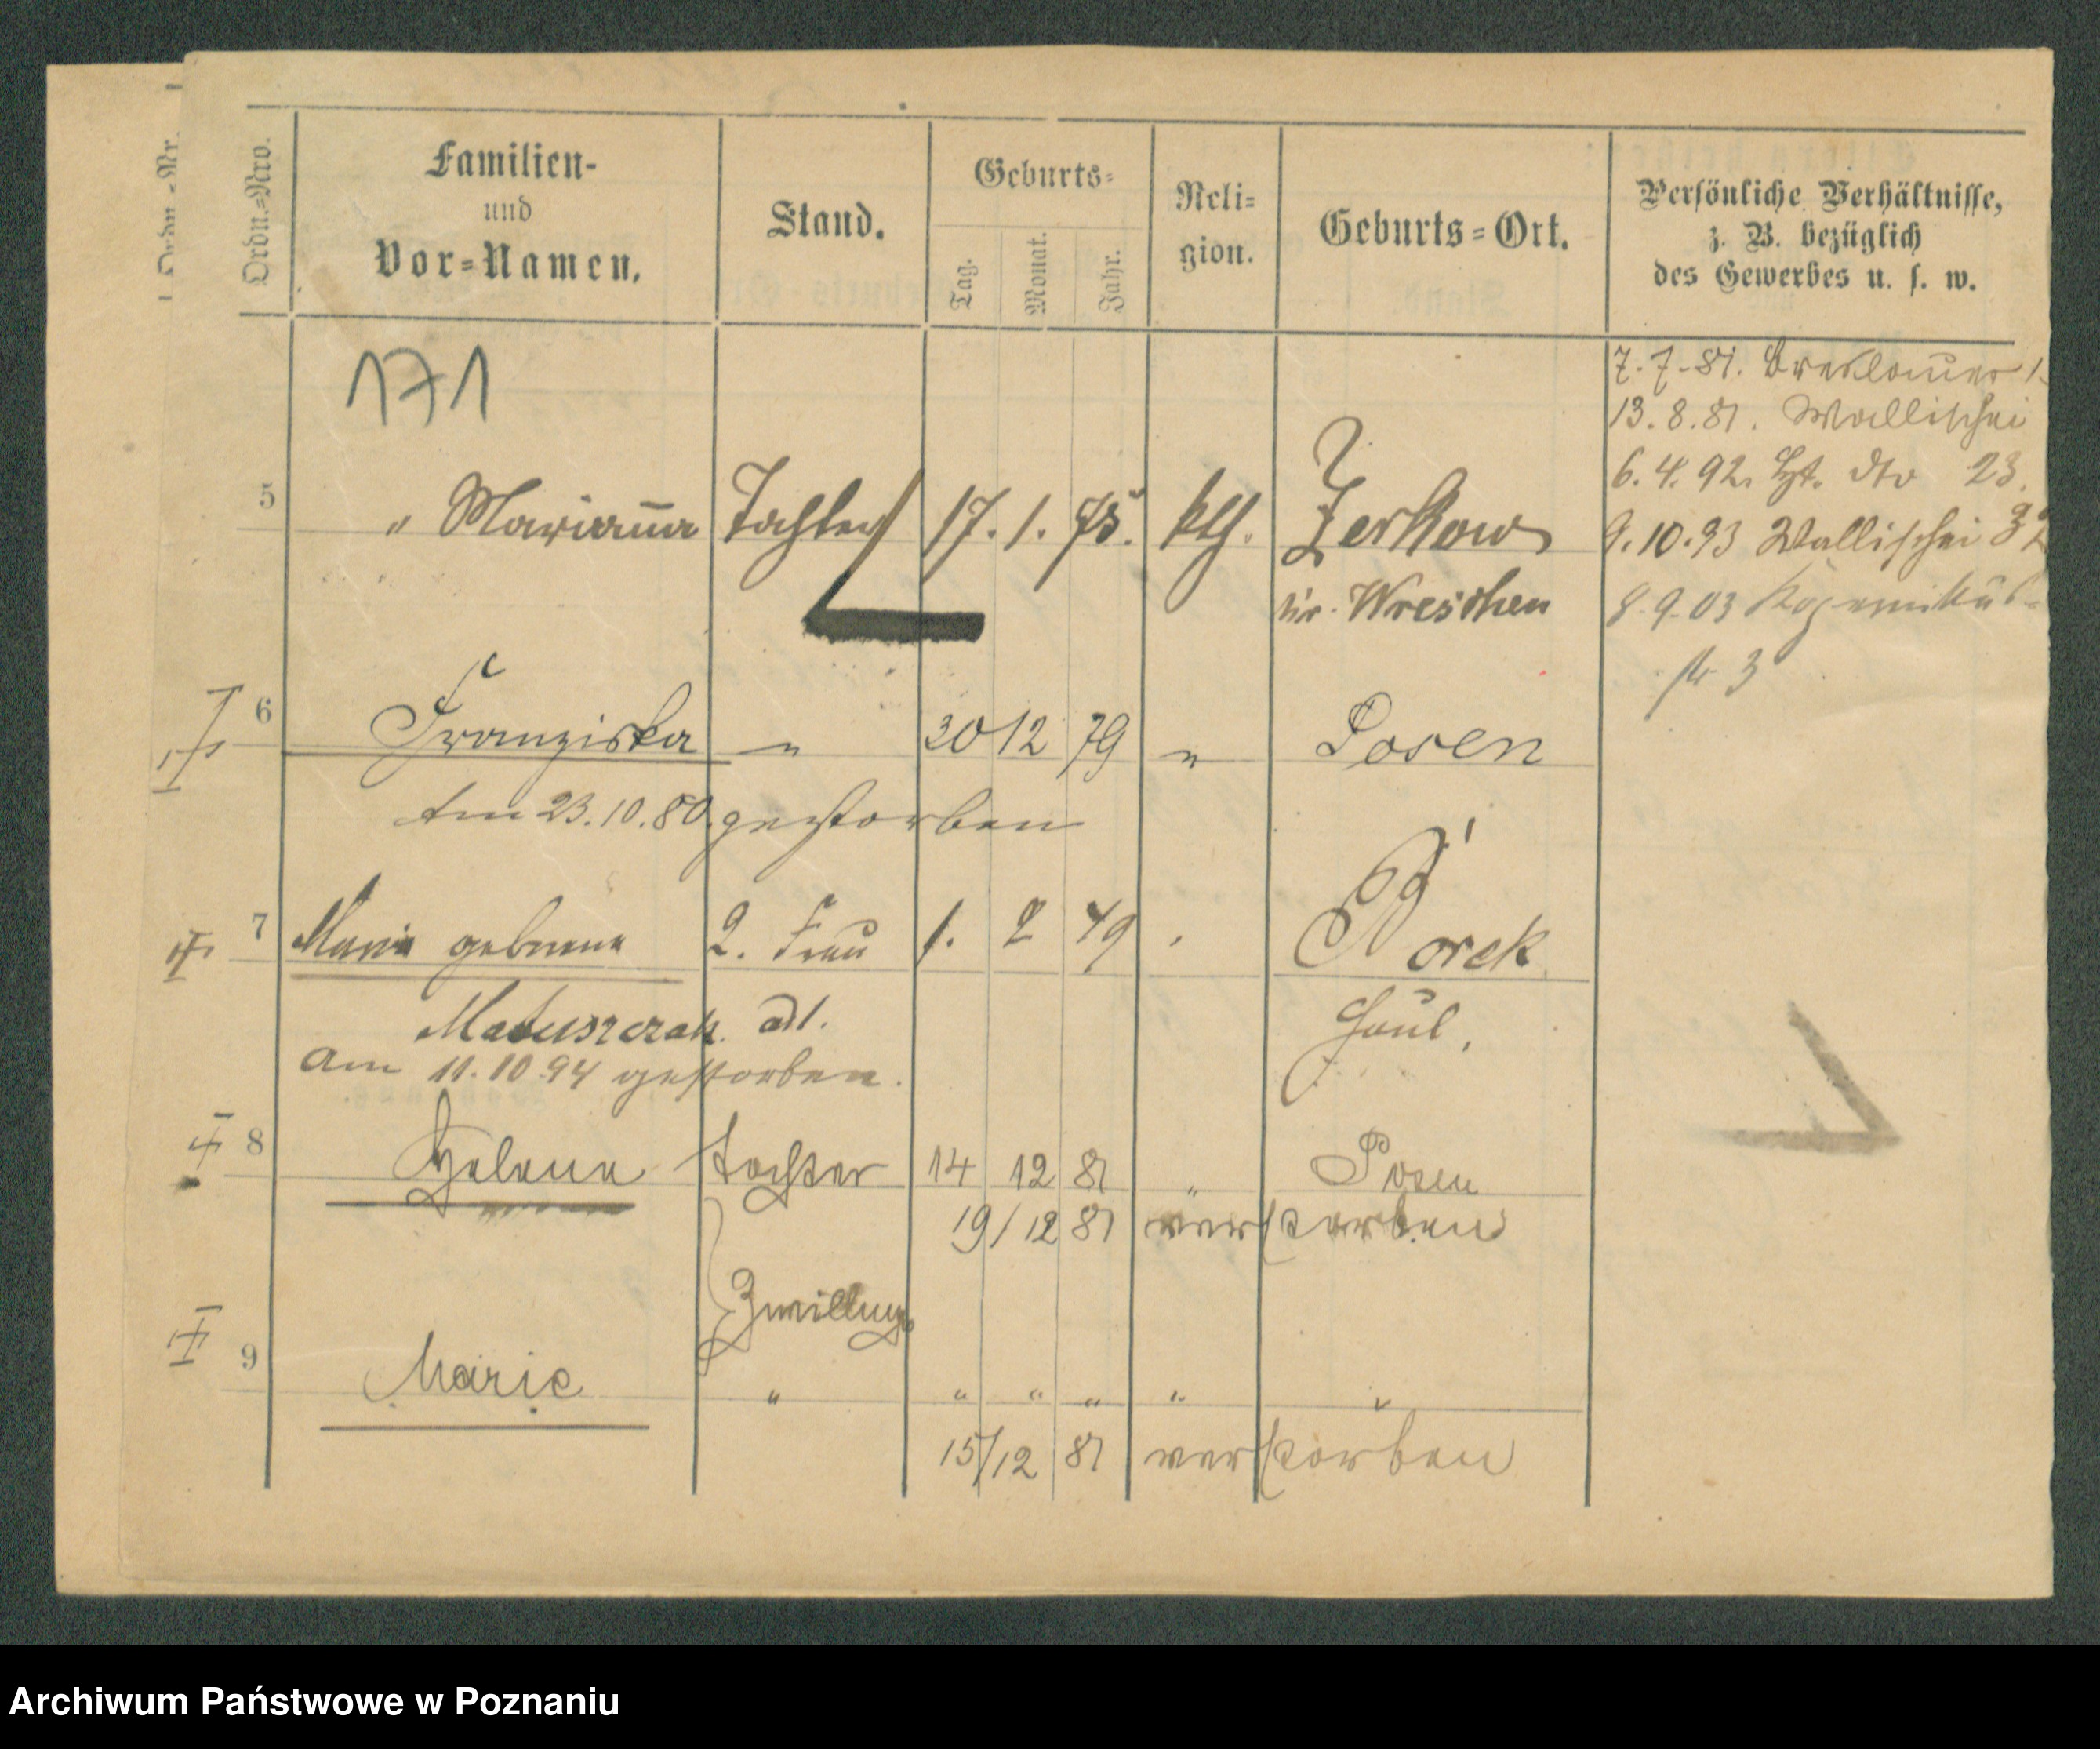 Ordn.-Nr.
Ordn.-Nro.
Familien-
und
Vor-Namen.
Stand.
Geburts-
Tag.
Monat.
Jahr.
Reli-
gion.
Geburts-Ort.
Persönliche Verhältnisse,
z. B. bezüglich
des Gewerbes u. s. w.
171
7.7.81. Breslauer
13.8.81. Wallischei
6.4.92. dto 23.
9.10.93 Wallischei
8.9.03
str 3
5 " Marianna Tochter 17. 1. 75. kth. Zerkow
kr. Wreschen
6 Franziska " 30 12 79 " Posen
Am 23.10.80. gestorben
7 Maria geborene 2. Frau 1. 2 49 Borek
Matuszczak
am 11.10.94 gestorben.
8 Helene Tochter 14 12 81 " Posen
19/12 81 verstorben
Zwillinge
9 Marie " " " " " "
15/12 81 verstorben
Archiwum Państwowe w Poznaniu